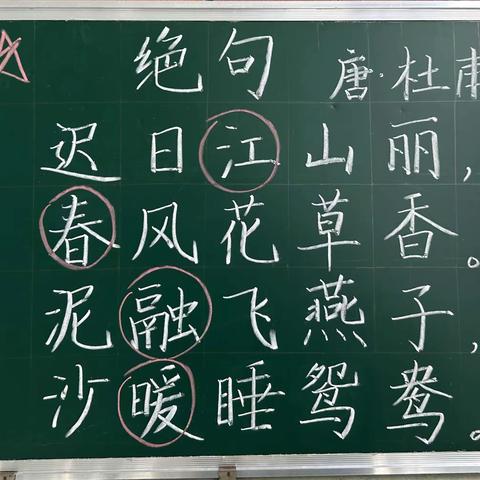 绝句 唐·杜甫
迟日江山丽，
春风花草香。
泥融飞燕子，
沙暖睡鸳鸯。